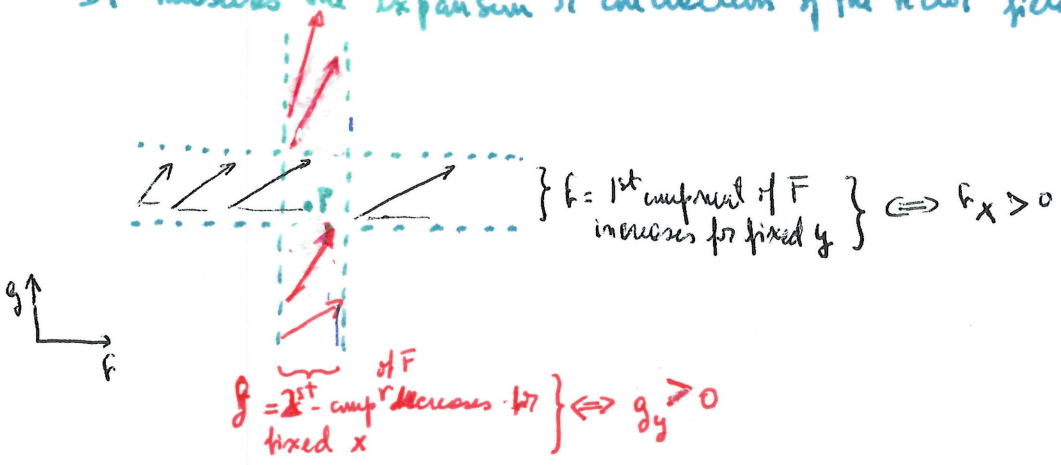 It measures the expansion or contraction of the vector field
P
} f = 1st component of F̄ } ⇔ f_x > 0
increases for fixed y
g
f
of F̄
g = 2st - comp increases for } ⇔ g_y > 0
fixed x